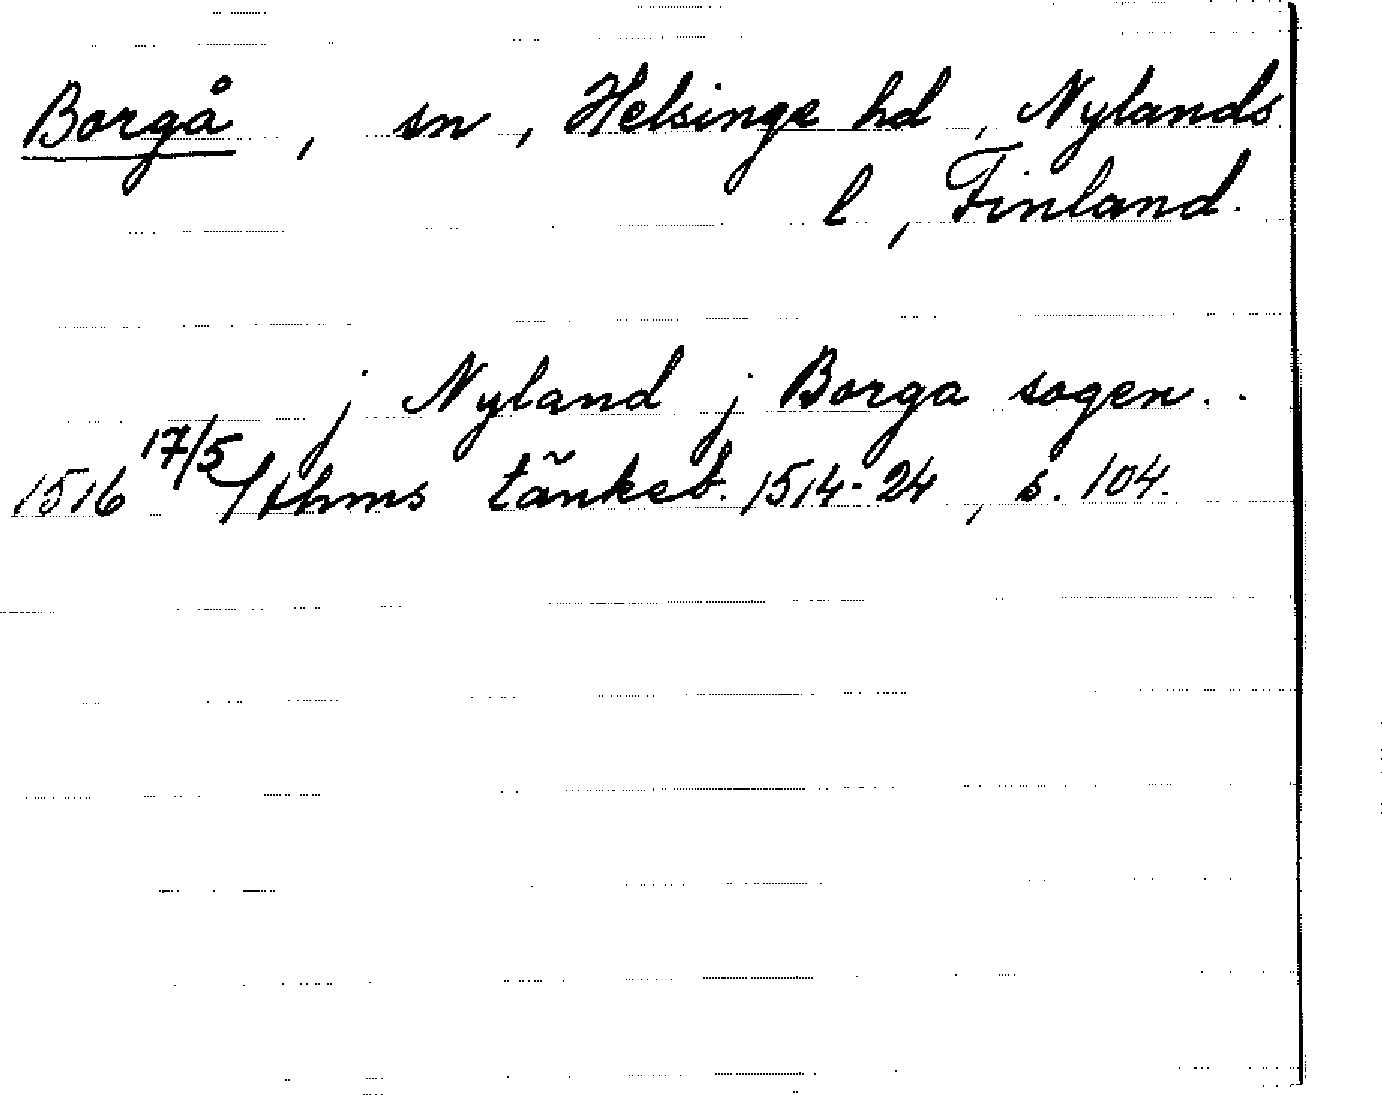 Borgå, sn, Helsinge hd, Nylands
l, Finland.
j Nyland j Borga sogen..
1516 17/5 Sthms tänkeb. 1514-24, s. 104.